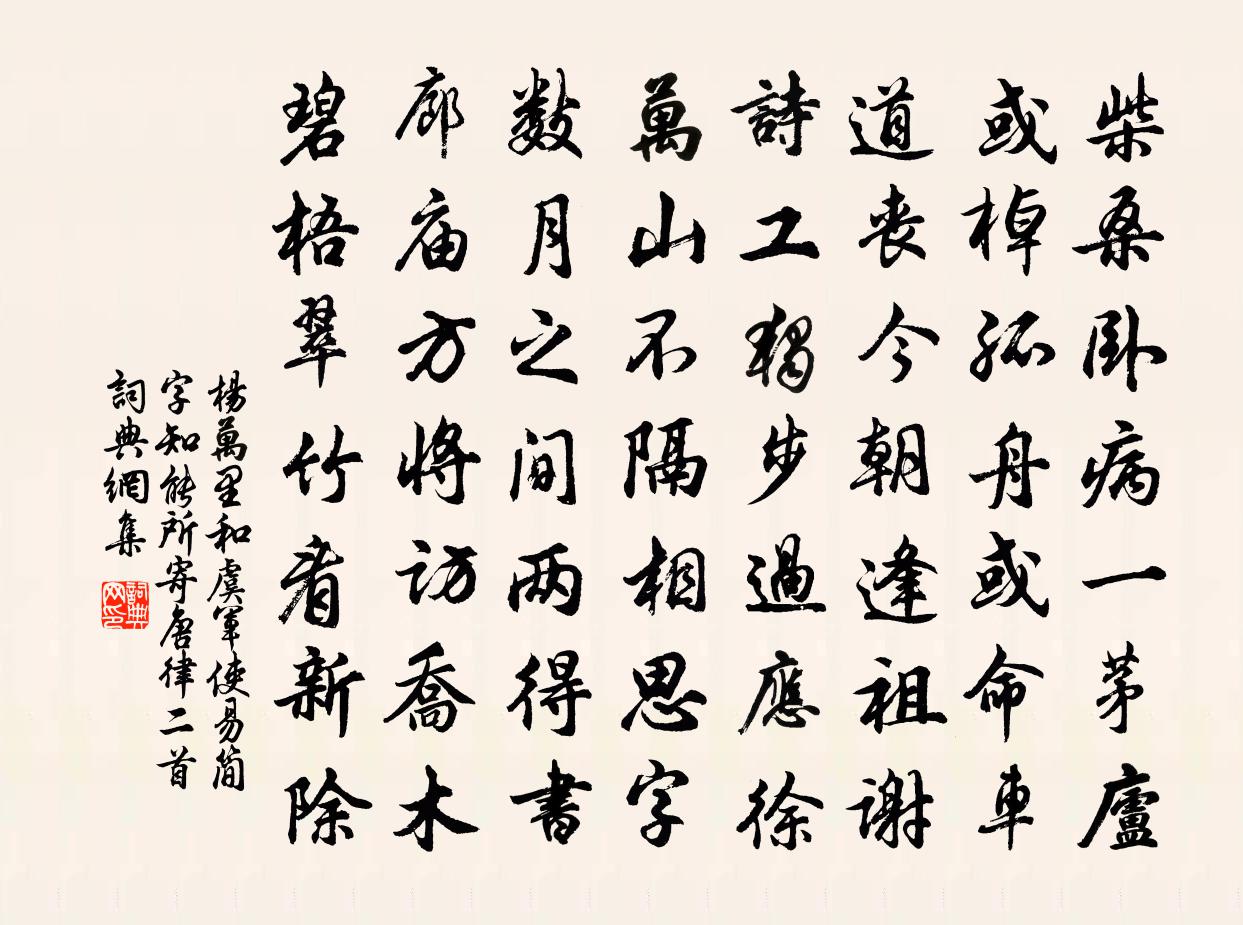 柴桑卧病一茅廬
或棹孤舟或命車
道丧今朝逢祖谢
詩工獨步過應徐
萬山不隔相思字
数月之间两得書
廊庙方将访喬木
碧梧翠竹看新除
楊萬里和虞軍使易简
字知能所寄唐律二首
詞典網集
詞典
网印